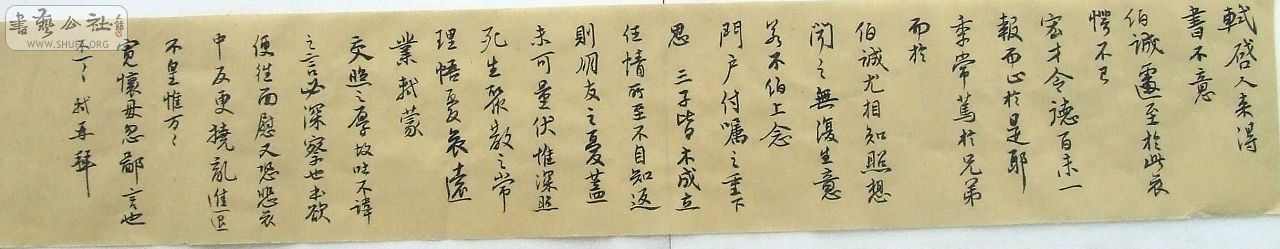 軾啓人来得
書不意
伯誠遽至於此哀
愕不已
宏才令德百未一
報而止於是耶
季常篤於兄弟
而於
伯誠尤相知照想
聞之無復生意
若不伯上念
門户付嘱之重下
思三子皆未成立
任情所至不自知返
則朋友之憂蓋
未可量伏惟深照
死生聚散之常
理悟憂哀遠
業軾蒙
交照之厚故吐不諱
之言必深察也本欲
便往面慰又恐悲哀
中反更撓亂進退
不皇惟万々
寬懷毋忽鄙言也
不一々軾再拜
書藝公社
WWW.SHUFA.ORG